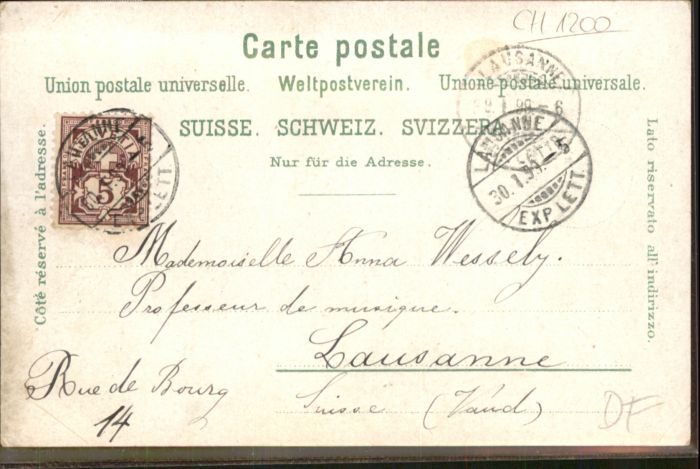 CH 1200
Carte postale
Union postale universelle. Weltpostverein. Unione postale universale.
SUISSE. SCHWEIZ. SVIZZERA.
Nur für die Adresse.
Côté réservé à l'adresse.
Lato riservato all' indirizzo.
HELVETIA
5
LETT.
LAUSANNE
99-6
LAUSANNE
30.1.99.
EXP. LETT.
Mademoiselle Anna Wessely.
Professeur de musique.
Lausanne
Rue de Bourg
14
Suisse (Vaud)
DF